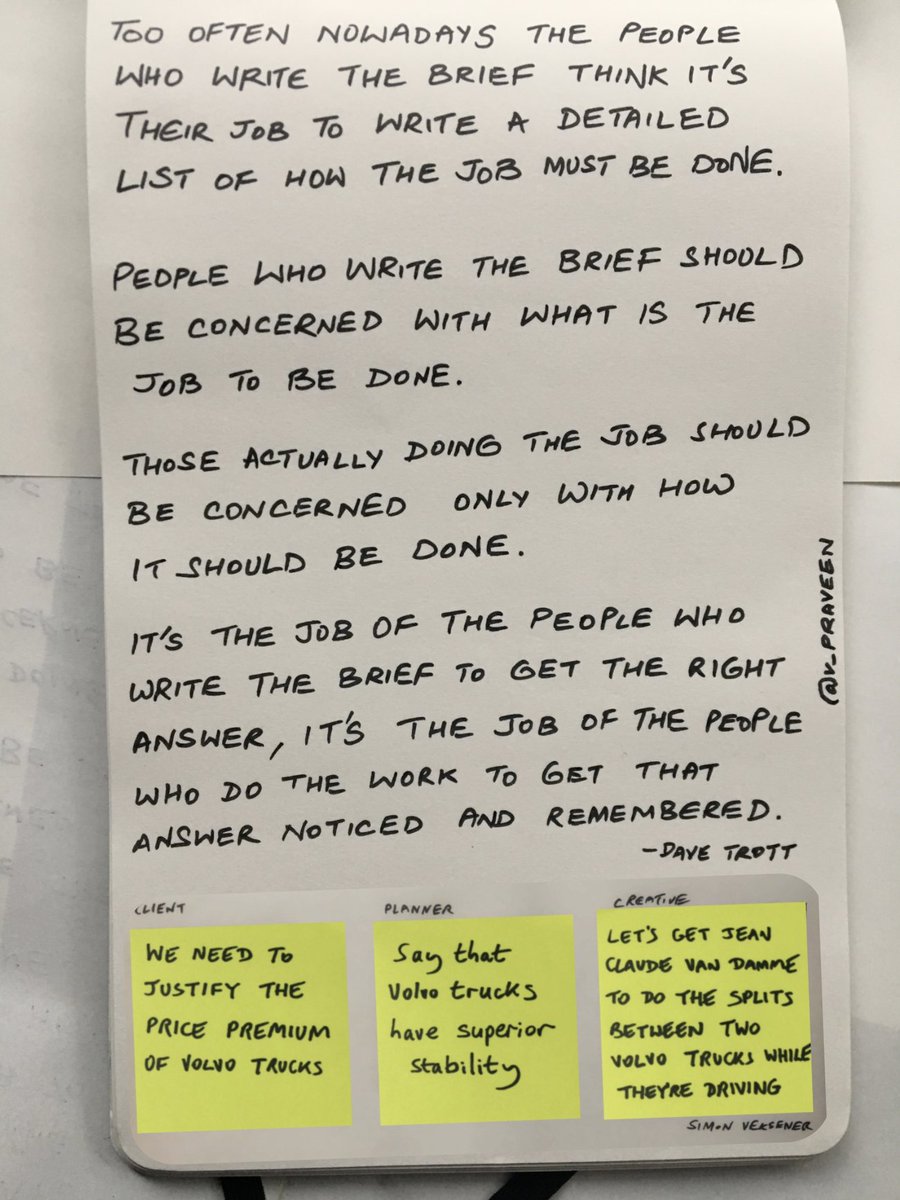 TOO OFTEN NOWADAYS THE PEOPLE
WHO WRITE THE BRIEF THINK IT'S
THEIR JOB TO WRITE A DETAILED
LIST OF HOW THE JOB MUST BE DONE.
PEOPLE WHO WRITE THE BRIEF SHOULD
BE CONCERNED WITH WHAT IS THE
JOB TO BE DONE.
THOSE ACTUALLY DOING THE JOB SHOULD
BE CONCERNED ONLY WITH HOW
IT SHOULD BE DONE.
IT'S THE JOB OF THE PEOPLE WHO
WRITE THE BRIEF TO GET THE RIGHT
ANSWER, IT'S THE JOB OF THE PEOPLE
WHO DO THE WORK TO GET THAT
ANSWER NOTICED AND REMEMBERED.
-DAVE TROTT
@V_PRAVEEN
CLIENT
WE NEED TO
JUSTIFY THE
PRICE PREMIUM
OF VOLVO TRUCKS
PLANNER
Say that
Volvo trucks
have superior
stability
CREATIVE
LET'S GET JEAN
CLAUDE VAN DAMME
TO DO THE SPLITS
BETWEEN TWO
VOLVO TRUCKS WHILE
THEY'RE DRIVING
SIMON VEKSENER